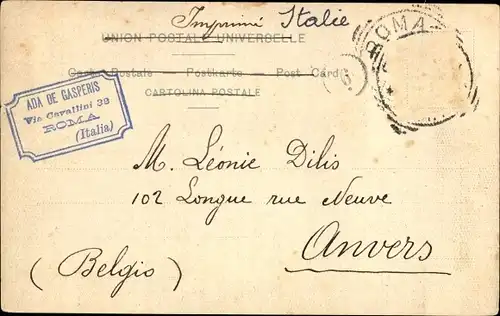 Imprimé Italie
UNION POSTALE UNIVERSELLE
Carte Postale Postkarte Post Card
CARTOLINA POSTALE
6
ROMA
ADA DE GASPERIS
Via Cavallini 38
ROMA
(Italia)
M. Léonie Dilis
102 Longue rue Neuve
Anvers
(Belgio)